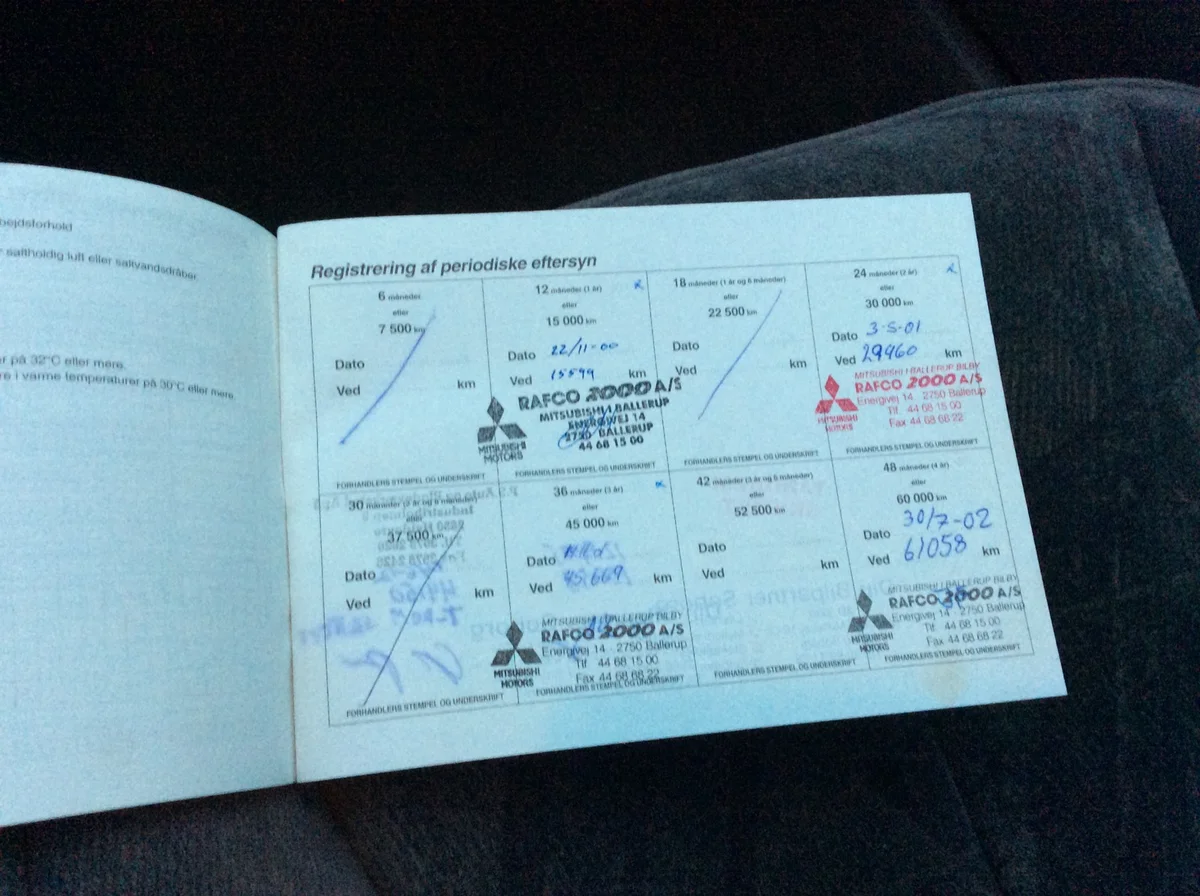 bejdsforhold
saltholdig luft eller saltvandsdråber
på 32°C eller mere.
i varme temperaturer på 30°C eller mere.
Registrering af periodiske eftersyn
6 måneder
eller
7 500 km
Dato
Ved km
FORHANDLERS STEMPEL OG UNDERSKRIFT
12 måneder (1 år)
eller
15 000 km
Dato 22/11-00
Ved 15599 km
RAFCO 2000 A/S
MITSUBISHI I BALLERUP
ENERGIVEJ 14
2750 BALLERUP
44 68 15 00
MITSUBISHI
MOTORS
FORHANDLERS STEMPEL OG UNDERSKRIFT
18 måneder (1 år og 6 måneder)
eller
22 500 km
Dato
Ved km
FORHANDLERS STEMPEL OG UNDERSKRIFT
24 måneder (2 år)
eller
30 000 km
Dato 3-5-01
Ved 29960 km
MITSUBISHI I BALLERUP BILBY
RAFCO 2000 A/S
Energivej 14 - 2750 Ballerup
Tlf. 44 68 15 00
Fax 44 68 66 22
MITSUBISHI
MOTORS
FORHANDLERS STEMPEL OG UNDERSKRIFT
30 måneder (2 år og 6 måneder)
eller
37 500 km
Dato
Ved km
FORHANDLERS STEMPEL OG UNDERSKRIFT
36 måneder (3 år)
eller
45 000 km
Dato
Ved 45669 km
MITSUBISHI I BALLERUP BILBY
RAFCO 2000 A/S
Energivej 14 - 2750 Ballerup
Tlf. 44 68 15 00
Fax 44 68 66 22
MITSUBISHI
MOTORS
FORHANDLERS STEMPEL OG UNDERSKRIFT
42 måneder (3 år og 6 måneder)
eller
52 500 km
Dato
Ved km
FORHANDLERS STEMPEL OG UNDERSKRIFT
48 måneder (4 år)
eller
60 000 km
Dato 30/7-02
Ved 61058 km
MITSUBISHI I BALLERUP BILBY
RAFCO 2000 A/S
Energivej 14 - 2750 Ballerup
Tlf. 44 68 15 00
Fax 44 68 66 22
MITSUBISHI
MOTORS
FORHANDLERS STEMPEL OG UNDERSKRIFT